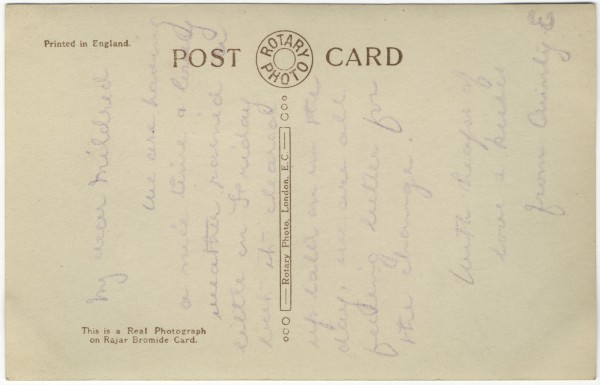 Printed in England.
POST CARD
ROTARY PHOTO
Rotary Photo, London, E.C.
This is a Real Photograph
on Rajar Bromide Card.
My dear Mildred
We are having
a nice time & lovely
weather rained a
little on Friday
but it cleared
up later on in the
day, we are all
feeling better for
the change.
With heaps of
love & kisses
from